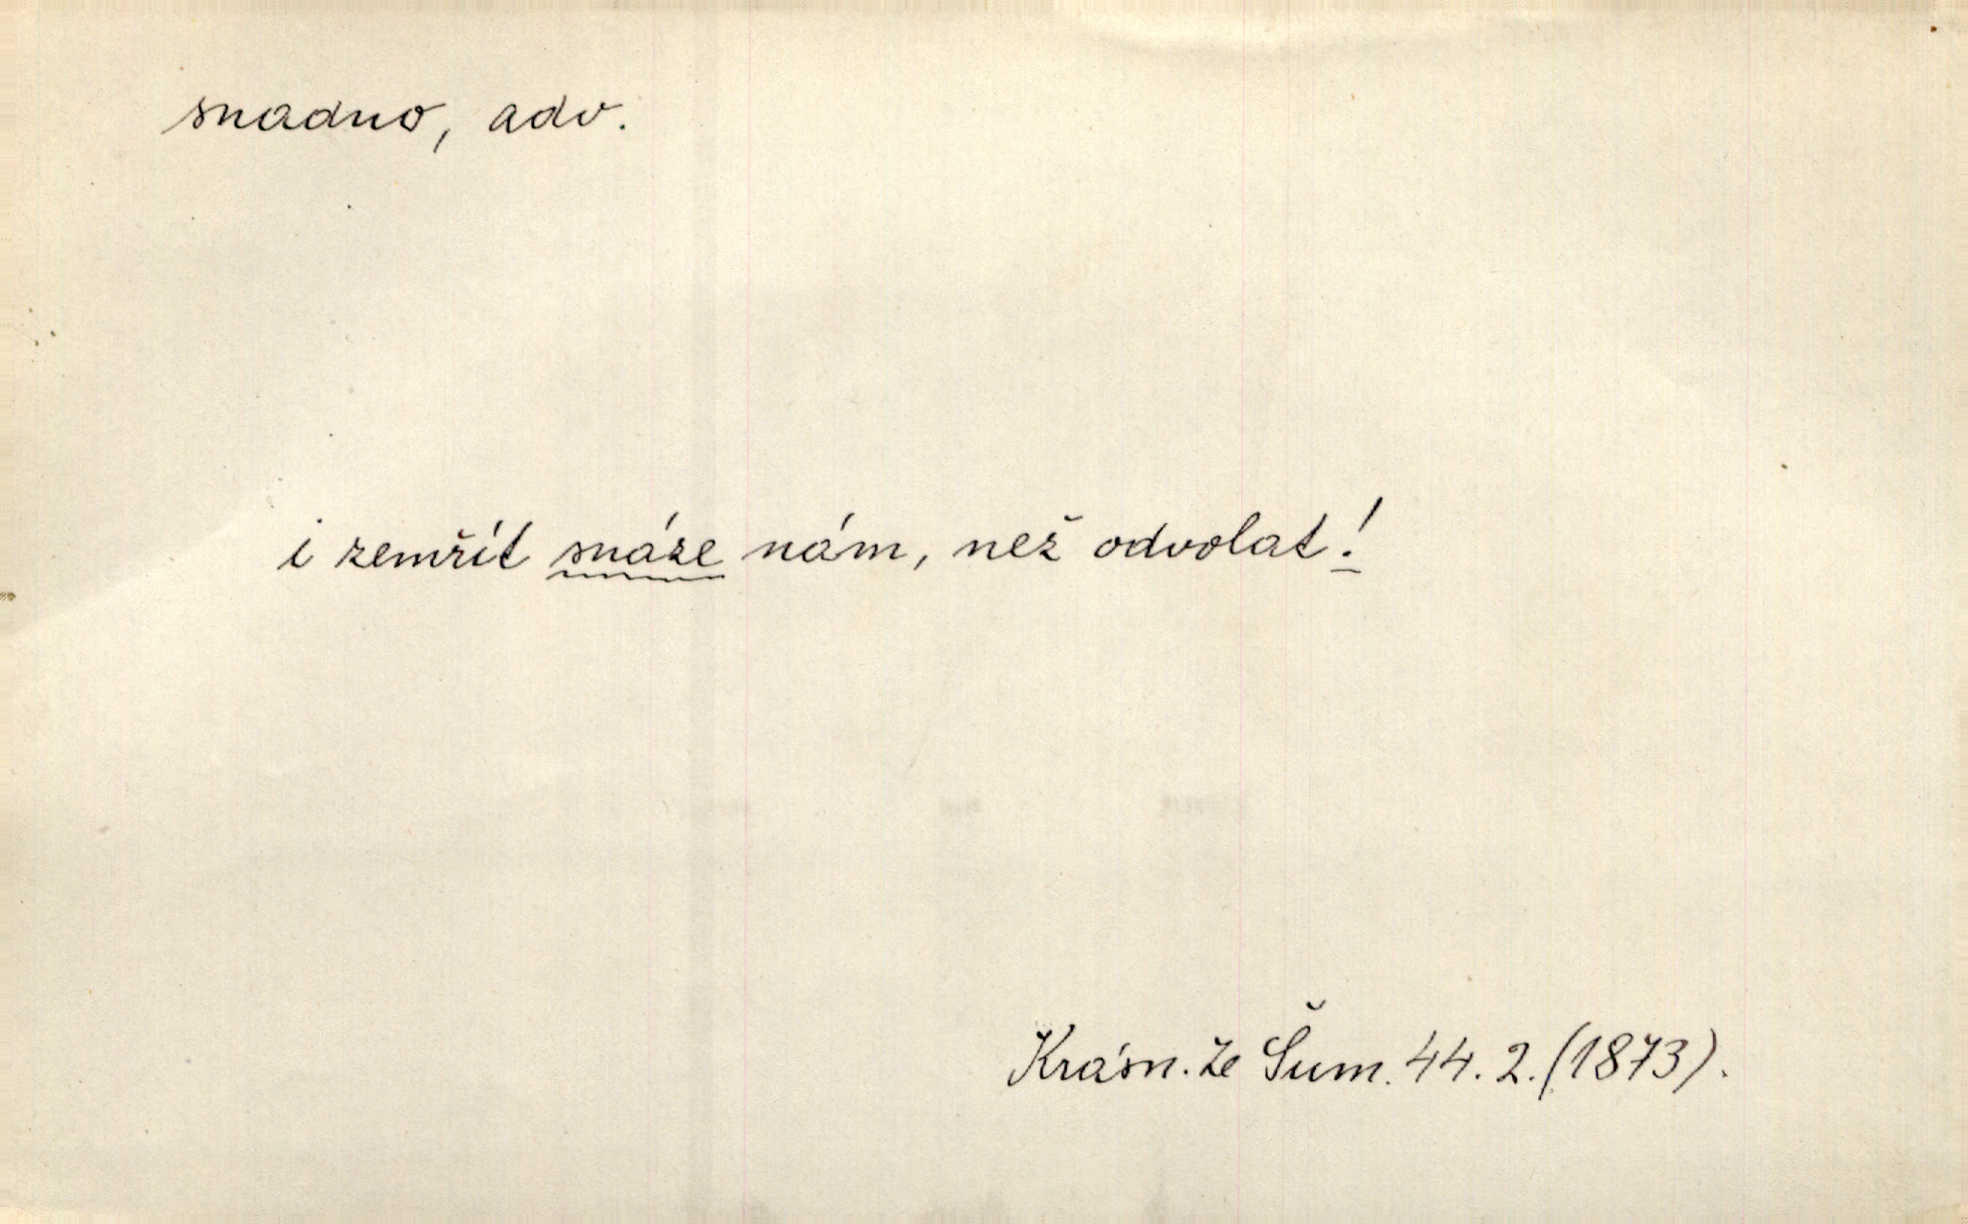 snadno, adv.
i zemřít snáze nám, než odvolat!
Krásn. ze Šum. 44. 2. (1873).